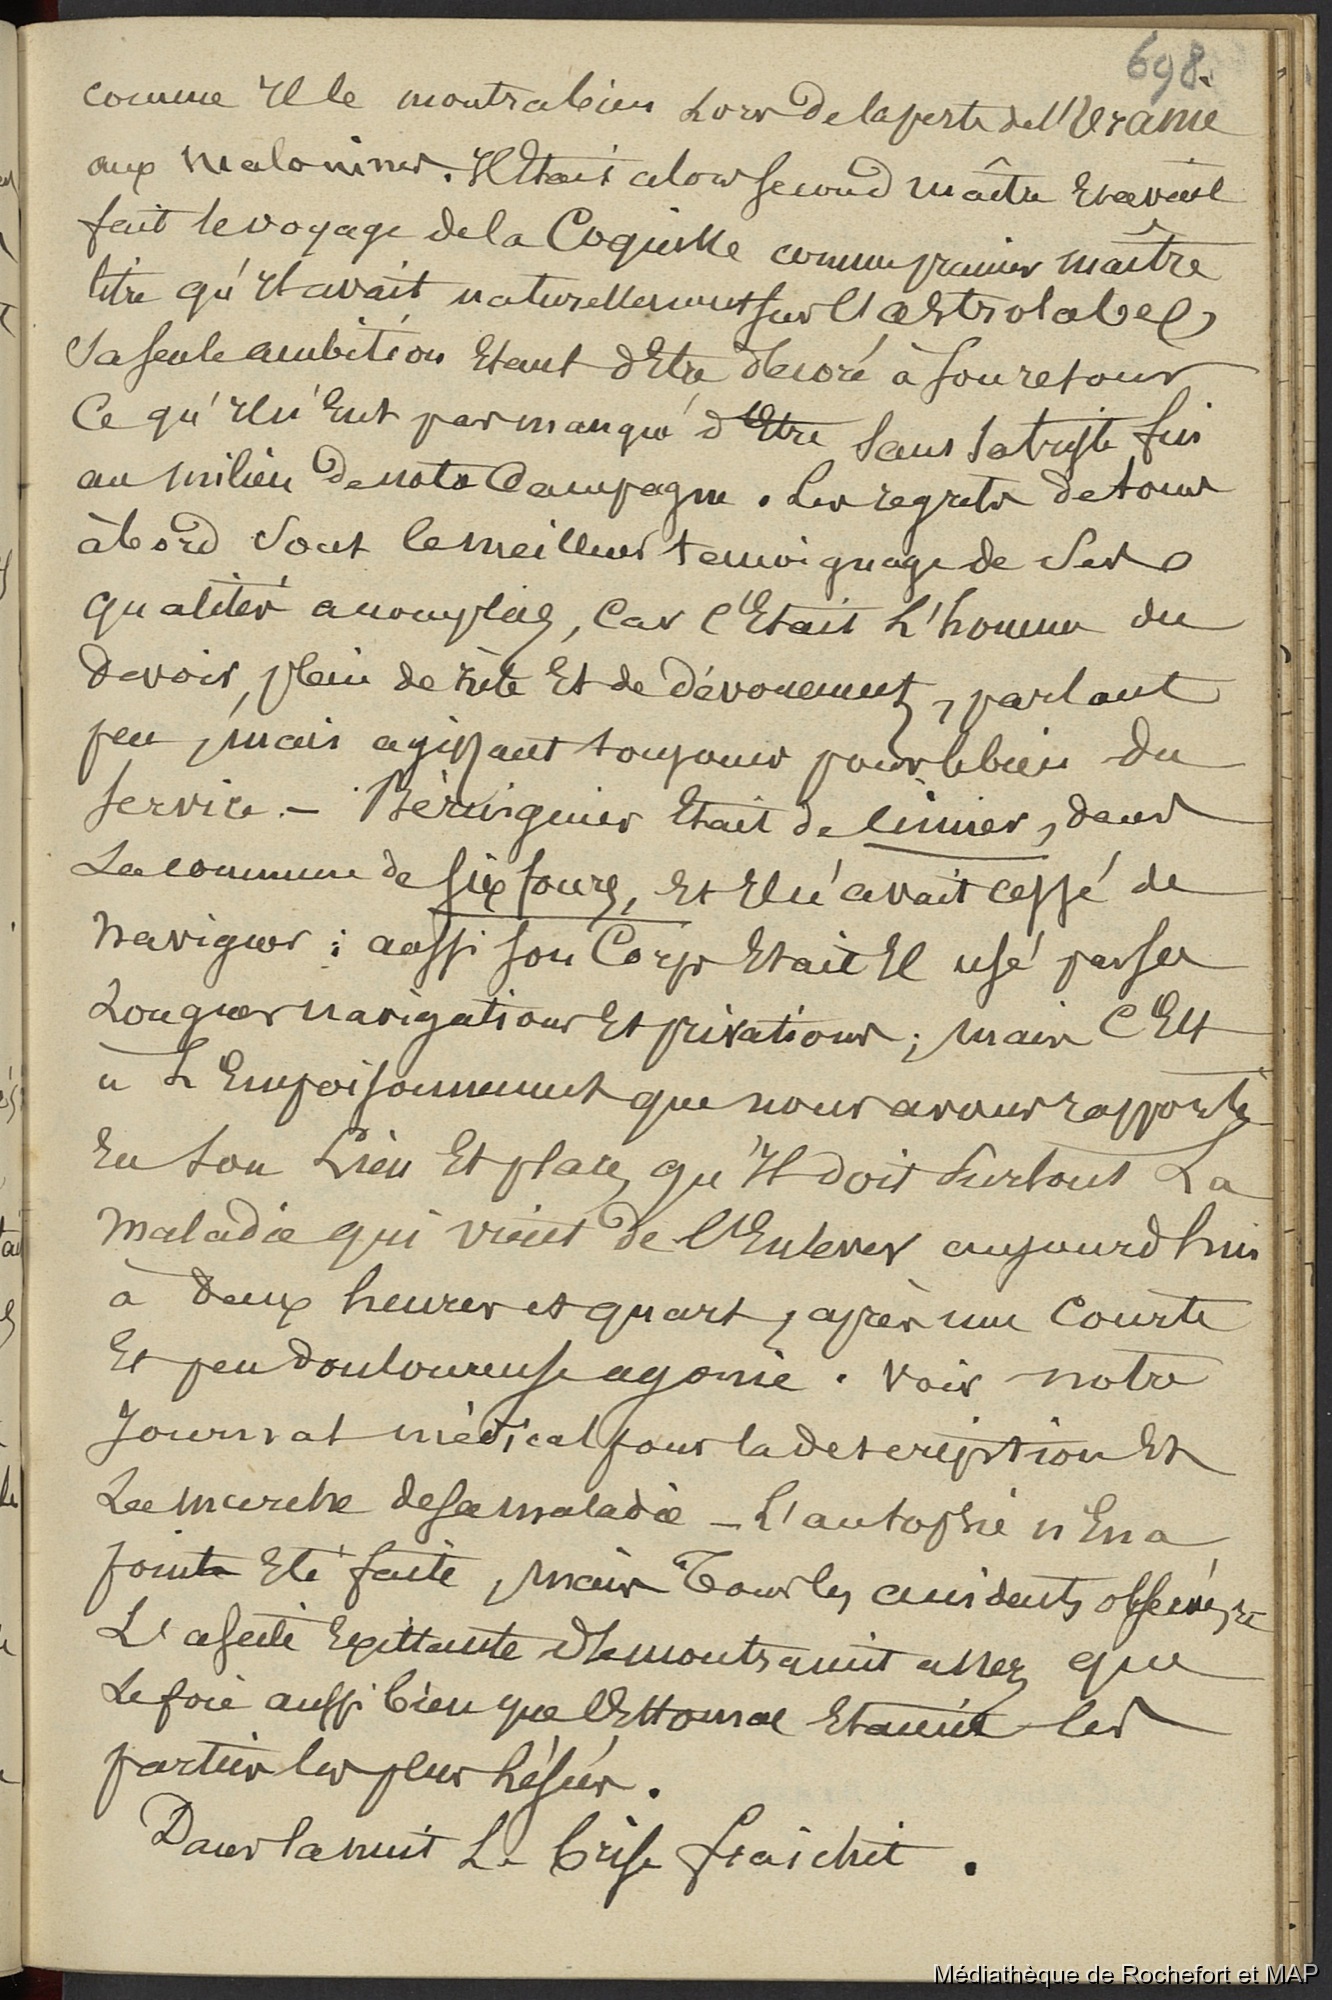 698.
comme Il le montra bien Lors de la perte de l'Uranie
aux Malouines. Il Etait alors second maître Et avait
fait le voyage de la Coquille comme premier maître
titre qu'Il avait naturellement sur l'astrolabe,
Sa seule ambition Etant d'Etre décoré à son retour
Ce qu'Il n'Eut pas manqué d'Etre sans sa triste fin
au milieu de notre Campagne. Les regrets de tous
à bord sont le meilleur temoignage de ses
qualités accomplies, Car c'Etait L'homme du
devoir, plein de zèle Et de dévouement, parlant
peu, mais agissant toujours pour le bien du
service. - Bérenguier Etait de , dans
La commune de Six fours, Et Il n'avait cessé de
Naviguer ; aussi son Corps Etait Il usé par ses
Longues navigations Et privations ; mais C'Est
à L'Empoisonnement que nous avons rapporté
En son Lieu Et place, qu'Il doit surtout La
maladie qui vient de l'Enlever aujourd'hui
à deux heures et quart, après une Courte
Et peu douloureuse agonie. Voir notre
Journal médical pour la description Et
La marche de sa maladie - L'autopsie n'En a
point Eté faite, mais Tous les accidents observés, et
L'ascite Existante démontraient assez que
Le foie aussi bien que l'Estomac Etaient les
parties les plus lésées.
Dans la nuit La brise fraichit.
Médiathèque de Rochefort et MAP